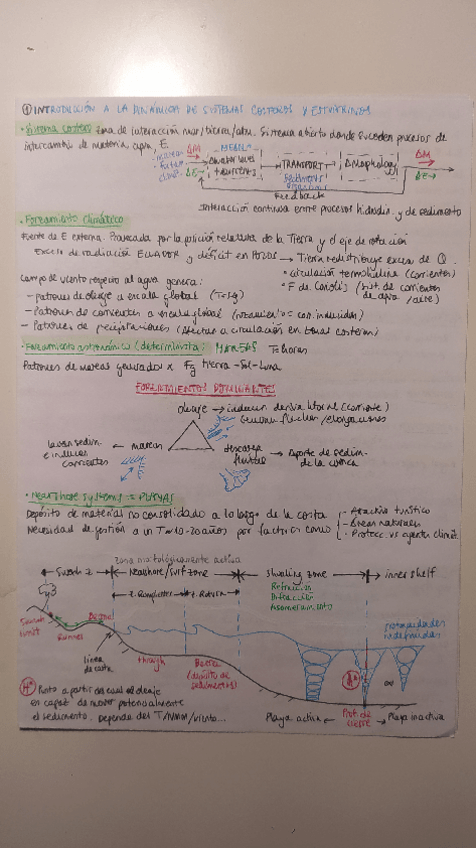 ① INTRODUCCIÓN A LA DINÁMICA DE SISTEMAS COSTEROS Y ESTUARINOS
• Sistema costero zona de interacción mar/tierra/atm. Sistema abierto donde suceden procesos de
intercambio de materia, agua, E.
ΔM
ΔE
TRANSPORT
Sediments
ΔMorphology
ΔM
ΔE
Feedback
Interacción continua entre procesos hidrodin. y de sedimento
• Forzamiento climático
Fuente de E externa. Provocada por la posición relativa de la Tierra y el eje de rotación
Exceso de radiación ECUADOR y déficit en POLOS → Tierra redistribuye exceso de Q.
• circulación termohalina (corrientes)
• F de Coriolis (dist. de corrientes
de agua / aire)
Campo de viento respecto al agua genera:
- patrones de oleaje a escala global
- Patrones de corrientes a escala global
- Patrones de precipitaciones (Afectan a circulación en zonas costeras)
• Forzamiento astronómico (determinista): MAREAS
Patrones de mareas generados x Fg tierra-Sol-Luna
FORZAMIENTOS DOMINANTES
oleaje → inducen deriva litoral (corriente)
mareas
lavan sedim.
e inducen
corrientes
descarga
fluvial → Aporte de sedim.
de la cuenca
• Nearshore systems = PLAYAS
Depósito de materiales no consolidado a lo largo de la costa
Necesidad de gestión a un T≈10-20años por factores como
- Atractivo turístico
- Áreas naturales
- Protecc vs agentes climát.
zona morfológicamente activa
Swash z
Nearshore/surf zone
shoaling zone
inner shelf
z. Rompientes
z. Rotura
Refracción
Difracción
Asomeramiento
Swash
limit
Runnel
Berma
línea
de costa
through
Barra
(depósito de
sedimentos)
∞
Playa activa
Prof. de
cierre
Playa inactiva
Punto a partir del cual el oleaje
es capaz de mover potencialmente
el sedimento. Depende del T/NMM/viento...